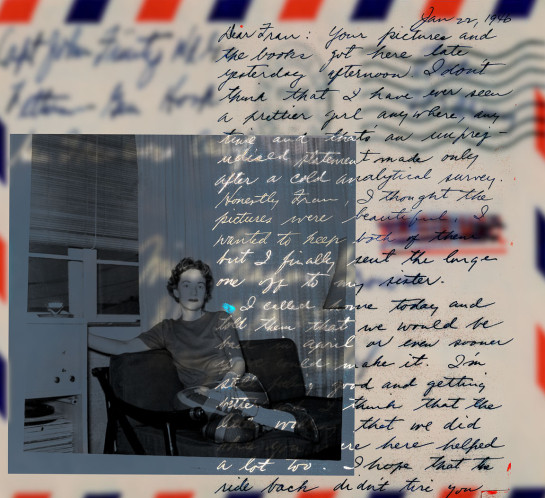 Jan 22, 1946
Dear Fran: Your pictures and
the books got here late
yesterday afternoon. I don't
think that I have ever seen
a prettier girl anywhere, any
time and that's an unprej-
udiced statement made only
after a cold analytical survey.
Honestly Fran, I thought the
pictures were beautiful. I
wanted to keep both of them
but I finally sent the large
one off to my sister.
I called home today and
told them that we would be
be april or even sooner
make it. I'm
good and getting
think that the
that we did
here helped
a lot too. I hope that the
ride back didn't tire you
Capt John